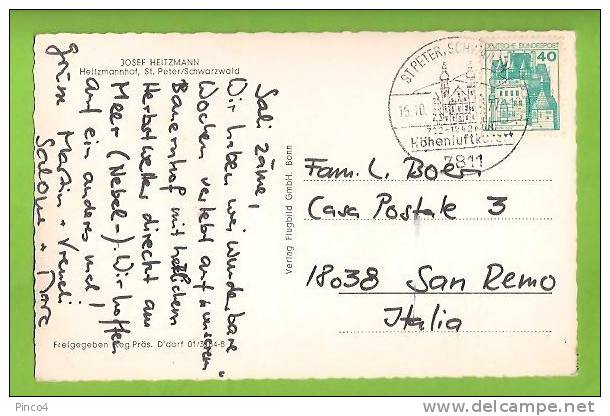 JOSEF HEITZMANN
Heitzmannhof, St. Peter/Schwarzwald
Sali zäme,
Wir haben zwei wunderbare
Wochen verlebt auf "unserem"
Bauernhof mit herrlichem
Herbstwetter direkt am
Meer (Nebel-). Wir hoffen
auf ein anderes mal,
grüsse Martin + Vreneli
Salome +
Freigegeben Reg. Präs. D'dorf
Verlag Flugbild GmbH. Bonn
ST PETER, SCHW
15.10.
Höhenluftkurort
7811
DEUTSCHE BUNDESPOST
40
Fam. L. Boeri
Casa Postale 3
18038 San Remo
Italia
© Pinco4
delcampe.net